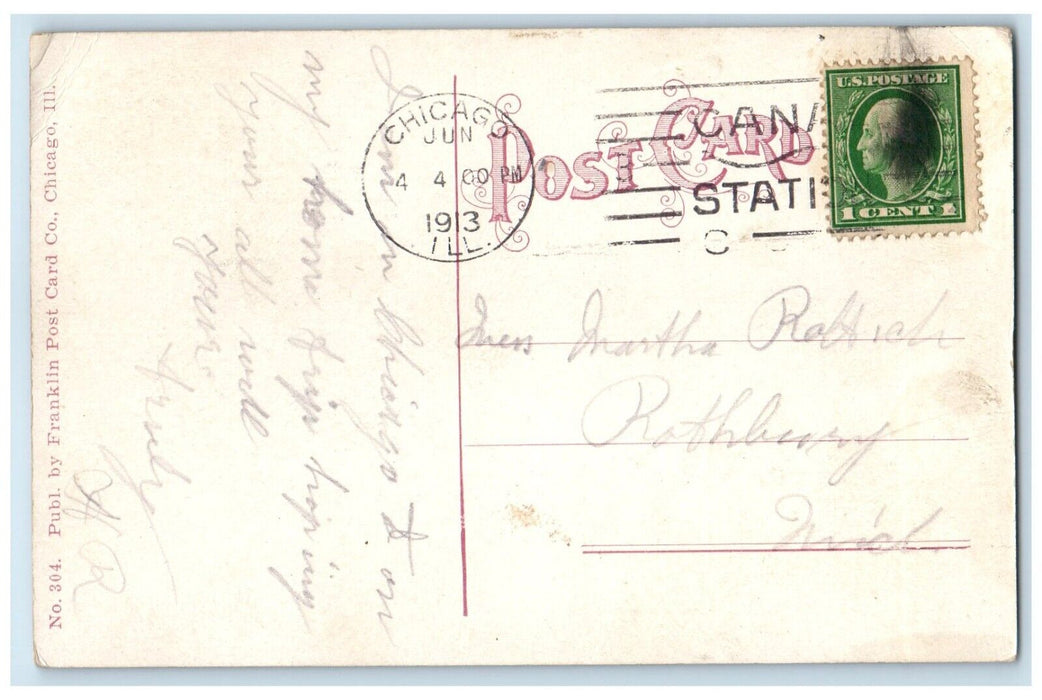 No. 304. Publ. by Franklin Post Card Co., Chicago, Ill.
POST CARD
CHICAGO
JUN
4 4 00 PM
1913
ILL.
CANA
STATI
C
U.S. POSTAGE
1 CENT 1
I am in Chicago & on
my home trip hoping
your all well
Yours
Truly
H R
Miss Martha Rottsich
Rothbury
Mich.